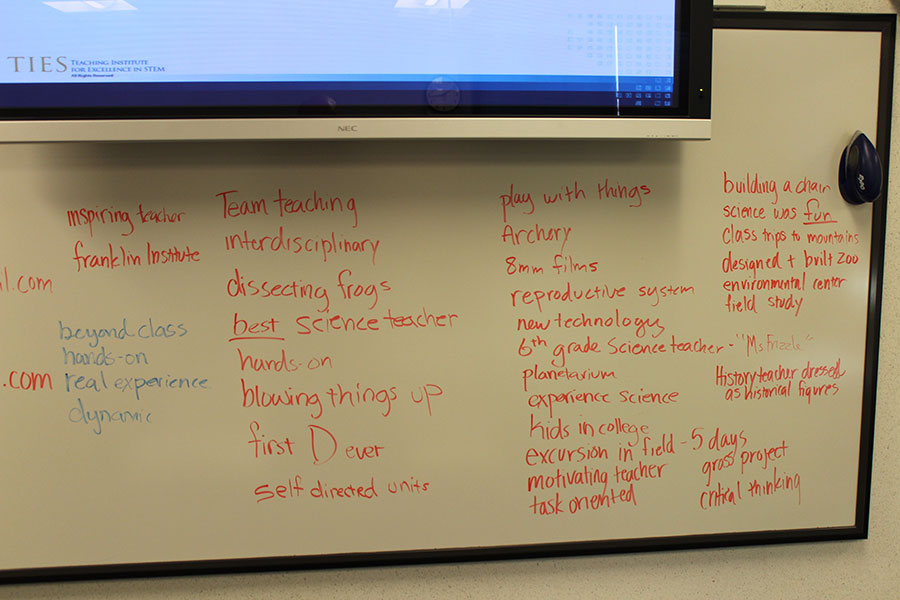 TIES TEACHING INSTITUTE
FOR EXCELLENCE IN STEM
All Rights Reserved
NEC
inspiring teacher
franklin Institute
il.com
beyond class
hands-on
.com
real experience
dynamic
Team teaching
interdisciplinary
dissecting frogs
best science teacher
hands-on
blowing things up
first D ever
self directed units
play with things
Archery
8mm films
reproductive system
new technology
6th grade Science teacher - "Ms Frizzle"
planetarium
experience science
kids in college
excursion in field - 5 days
motivating teacher
task oriented
gross project
critical thinking
building a chair
science was fun
class trips to mountains
designed + built zoo
environmental center
field study
History teacher dressed
as historical figures
EXPO